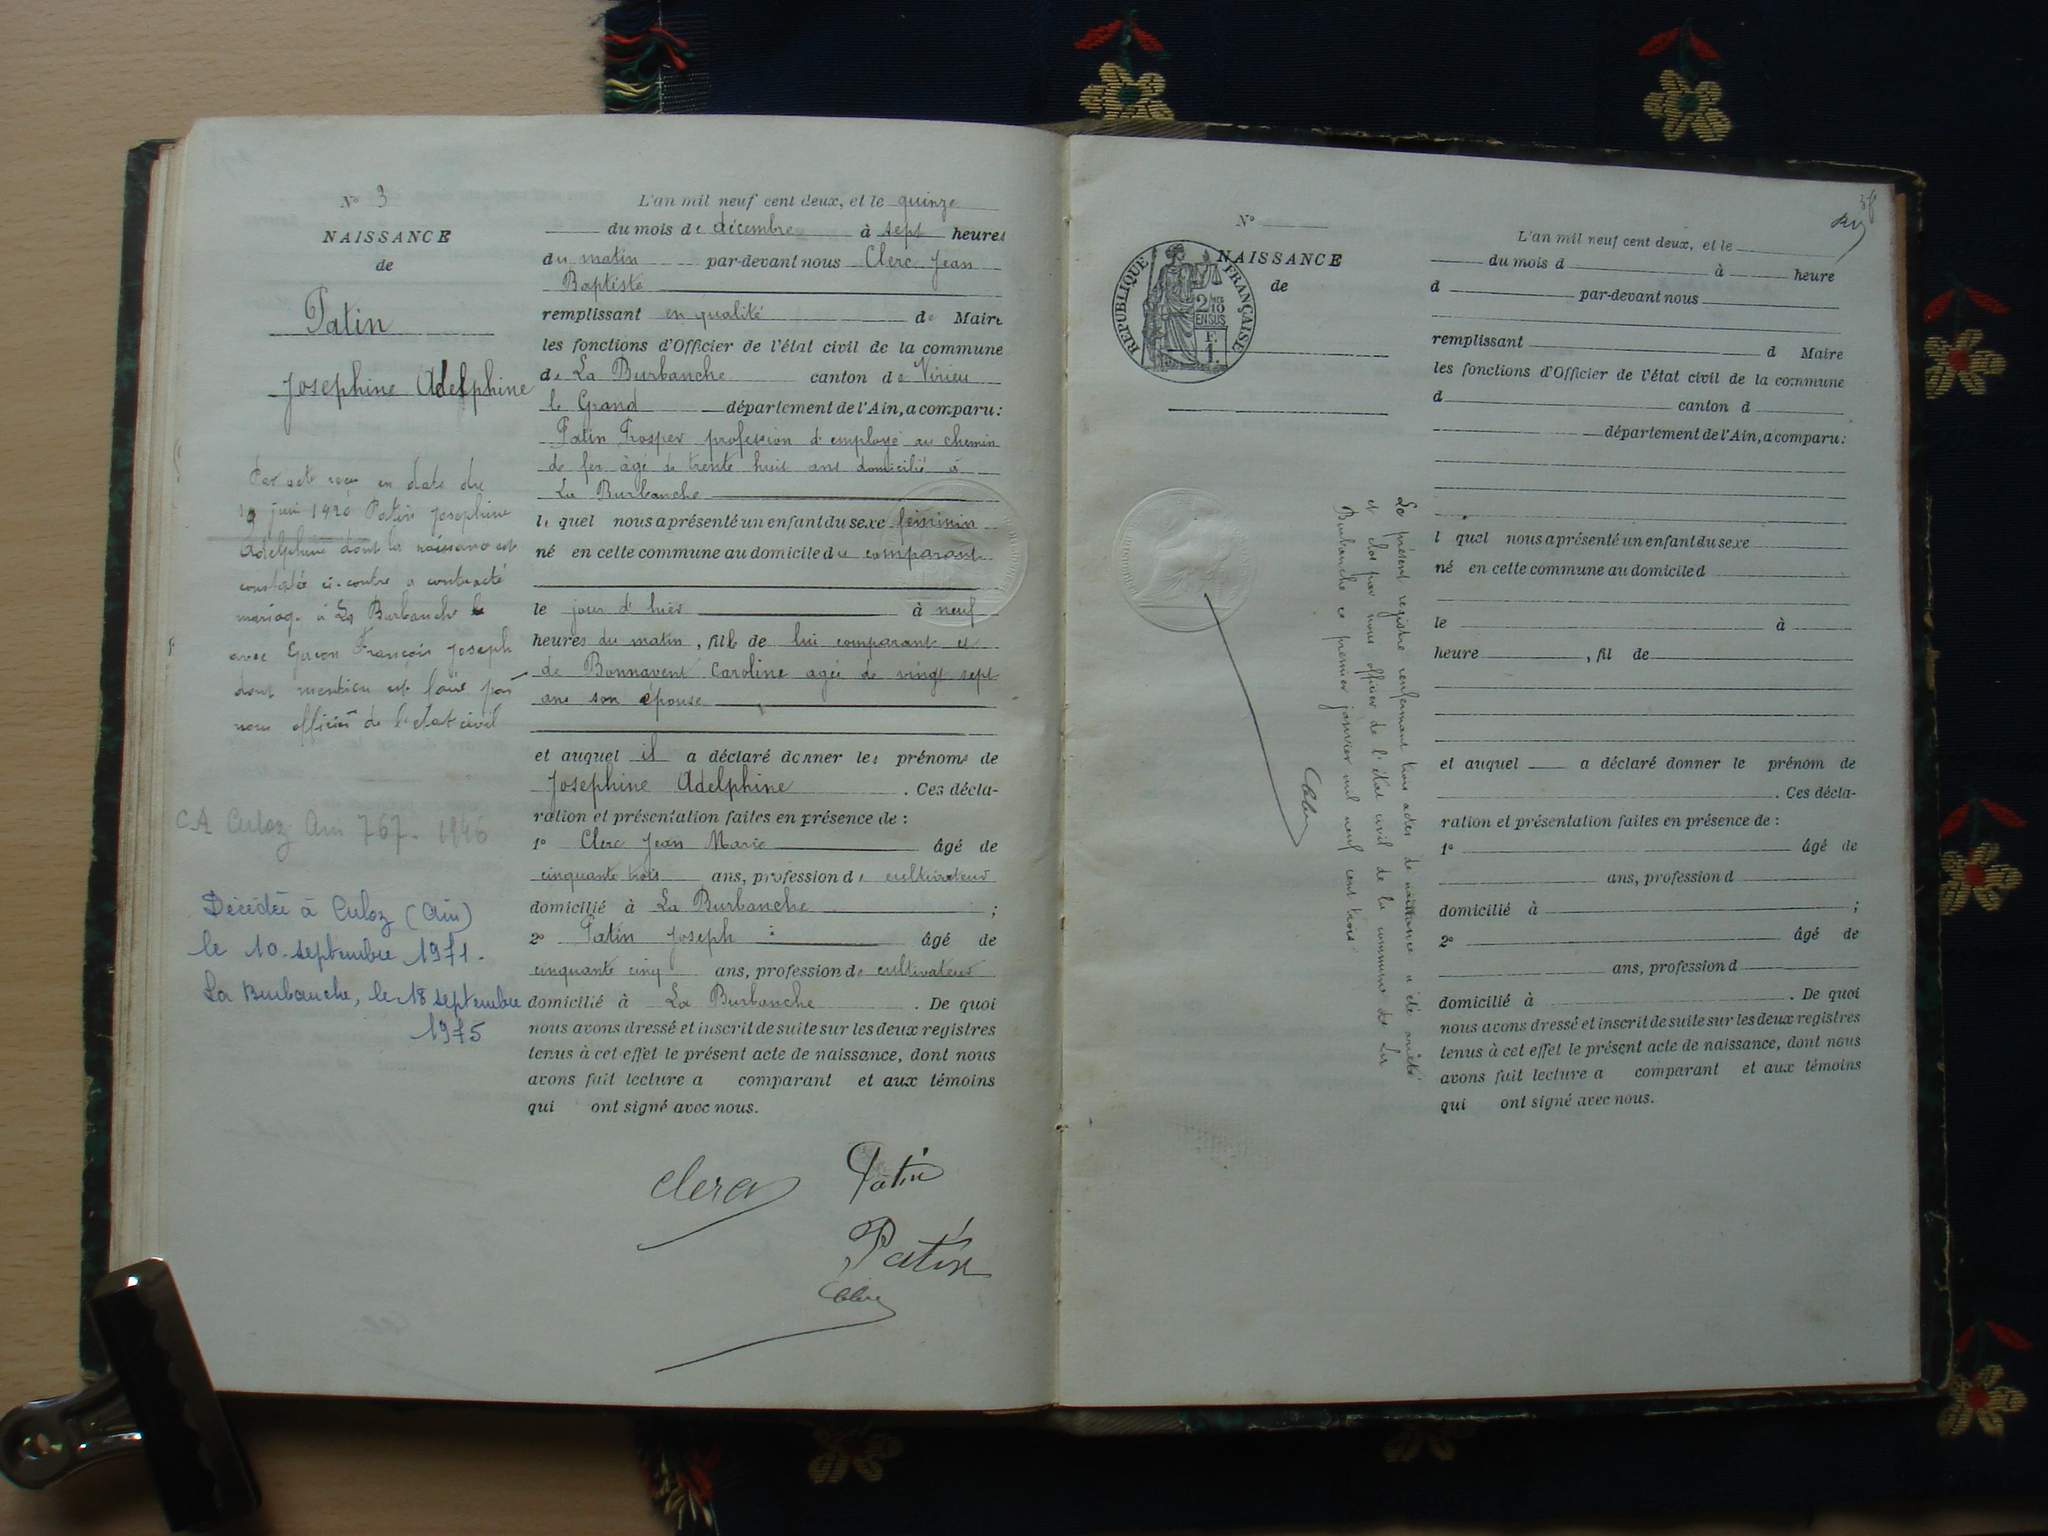 N° 3
NAISSANCE
de
Patin
Josephine Adelphine
Par acte reçu en date du
19 juin 1920 Patin Josephine
Adelphine dont la naissance est
constatée ci-contre a contracté
mariage à La Burbanche
avec François Joseph
dont mention est faite par
nous officier de l'état civil
CA Culoz Ain 767 - 1946
Décédée à Culoz (Ain)
le 10 septembre 1971.
La Burbanche, le 18 septembre
1975
L'an mil neuf cent deux, et le quinze
du mois de décembre à sept heures
du matin par-devant nous Clerc Jean
Baptiste
remplissant en qualité de Maire
les fonctions d'Officier de l'état civil de la commune
de La Burbanche canton de Virieu
le Grand département de l'Ain, a comparu:
Patin Prosper profession d'employé au chemin
de fer âgé de trente huit ans domicilié à
La Burbanche
lequel nous a présenté un enfant du sexe féminin
né en cette commune au domicile du comparant
le jour d'hier à neuf
heures du matin, fille de lui comparant et
de Bonnavent Caroline agée de vingt sept
ans son épouse
et auquel il a déclaré donner les prénoms de
Josephine Adelphine. Ces décla-
ration et présentation faites en présence de :
1° Clerc Jean Marie âgé de
cinquante trois ans, profession de cultivateur
domicilié à La Burbanche ;
2° Patin Joseph âgé de
cinquante cinq ans, profession de cultivateur
domicilié à La Burbanche. De quoi
nous avons dressé et inscrit de suite sur les deux registres
tenus à cet effet le présent acte de naissance, dont nous
avons fait lecture a comparant et aux témoins
qui ont signé avec nous.
Clerc Patin
Patin
Clerc
N°
NAISSANCE
de
RÉPUBLIQUE FRANÇAISE
2/10 EN SUS
F. 1.
Le présent registre renfermant trois actes de naissance a été arrêté
et clos par nous officier de l'état civil de la commune de La
Burbanche ce premier janvier mil neuf cent trois
Clerc
L'an mil neuf cent deux, et le
du mois d à heure
d par-devant nous
remplissant d Maire
les fonctions d'Officier de l'état civil de la commune
d canton d
département de l'Ain, a comparu:
l quel nous a présenté un enfant du sexe
né en cette commune au domicile d
le à
heure , fil de
et auquel a déclaré donner le prénom de
. Ces décla-
ration et présentation faites en présence de :
1° âgé de
ans, profession d
domicilié à ;
2° âgé de
ans, profession d
domicilié à . De quoi
nous avons dressé et inscrit de suite sur les deux registres
tenus à cet effet le présent acte de naissance, dont nous
avons fait lecture a comparant et aux témoins
qui ont signé avec nous.